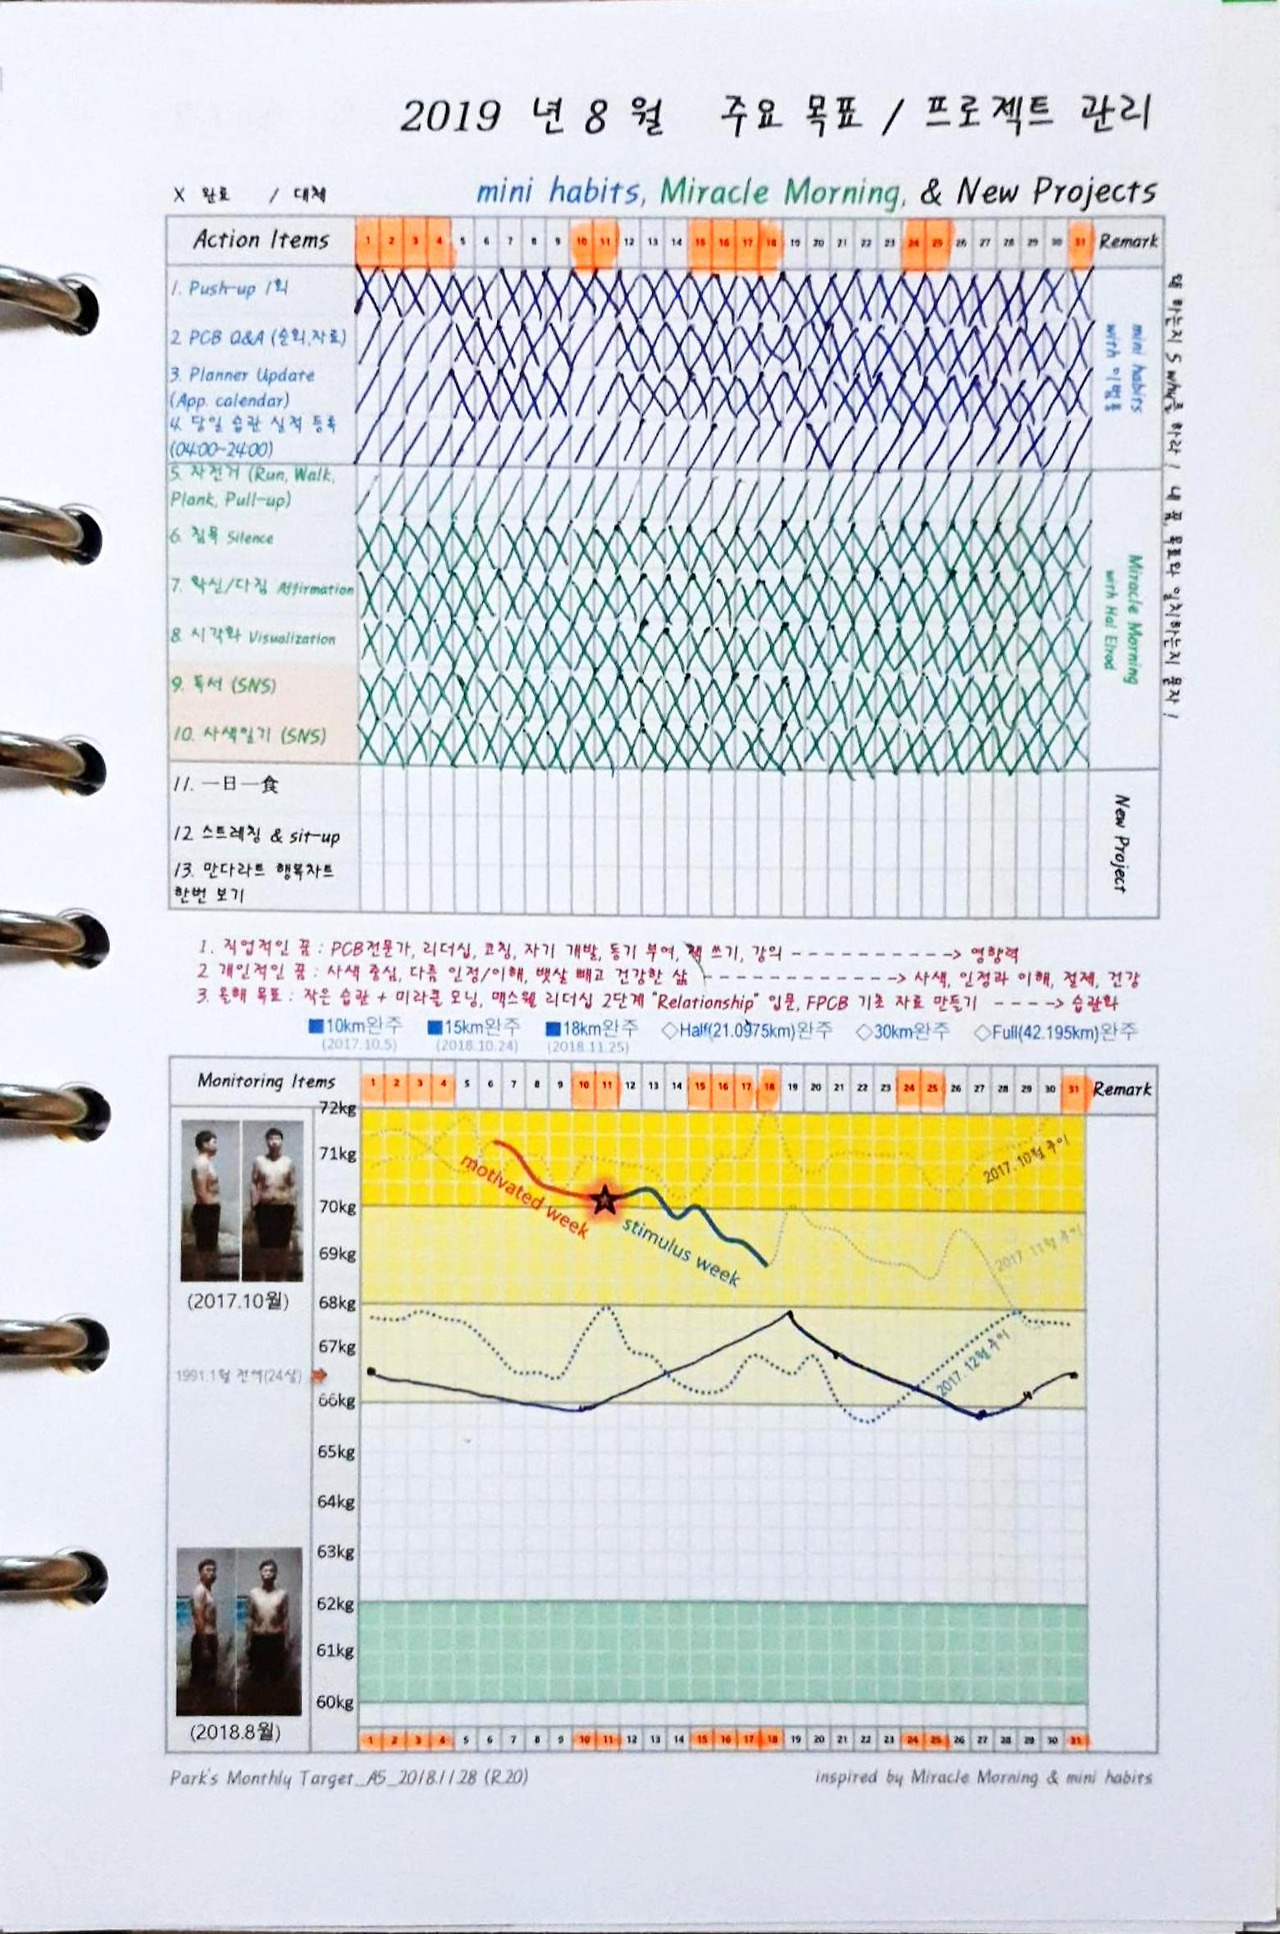 2019 년 8 월 주요 목표 / 프로젝트 관리
X 완료 / 대체
mini habits, Miracle Morning, & New Projects
Action Items 1 2 3 4 5 6 7 8 9 10 11 12 13 14 15 16 17 18 19 20 21 22 23 24 25 26 27 28 29 30 31 Remark
1. Push-up 1회
2 PCB Q&A (순회,자료)
3. Planner Update
(App. calendar)
4. 당일 습관 실적 등록
(04:00~24:00)
mini habits
with 이범용
5. 자전거 (Run, Walk,
Plank, Pull-up)
6. 침묵 Silence
7. 확신/다짐 Affirmation
8. 시각화 Visualization
9. 독서 (SNS)
10. 사색일기 (SNS)
Miracle Morning
with Hal Elrod
11. 一日一食
12 스트레칭 & sit-up
13. 만다라트 행복차트
한번 보기
New Project
왜 하는지 5 why를 하라 ! 내 꿈, 목표와 일치하는지 묻자 !
1. 직업적인 꿈 : PCB전문가, 리더십, 코칭, 자기 개발, 동기 부여, 책 쓰기, 강의 ----------> 영향력
2 개인적인 꿈 : 사색 중심, 다름 인정/이해, 뱃살 빼고 건강한 삶 --------------> 사색, 인정과 이해, 절제, 건강
3. 올해 목표 : 작은 습관 + 미라클 모닝, 맥스웰 리더십 2단계 "Relationship" 입문, FPCB 기초 자료 만들기 ----> 습관화
■10km완주 ■15km완주 ■18km완주 ◇Half(21.0975km)완주 ◇30km완주 ◇Full(42.195km)완주
(2017.10.5) (2018.10.24) (2018.11.25)
Monitoring Items 1 2 3 4 5 6 7 8 9 10 11 12 13 14 15 16 17 18 19 20 21 22 23 24 25 26 27 28 29 30 31 Remark
72kg
71kg
70kg
69kg
68kg
67kg
66kg
65kg
64kg
63kg
62kg
61kg
60kg
motivated week
stimulus week
2017. 10월 추이
2017. 11월 추이
2017. 12월 추이
(2017.10월)
1991.1월 전역(24살)
(2018.8월)
1 2 3 4 5 6 7 8 9 10 11 12 13 14 15 16 17 18 19 20 21 22 23 24 25 26 27 28 29 30 31
Park's Monthly Target_A5_2018.11.28 (R.20)
inspired by Miracle Morning & mini habits